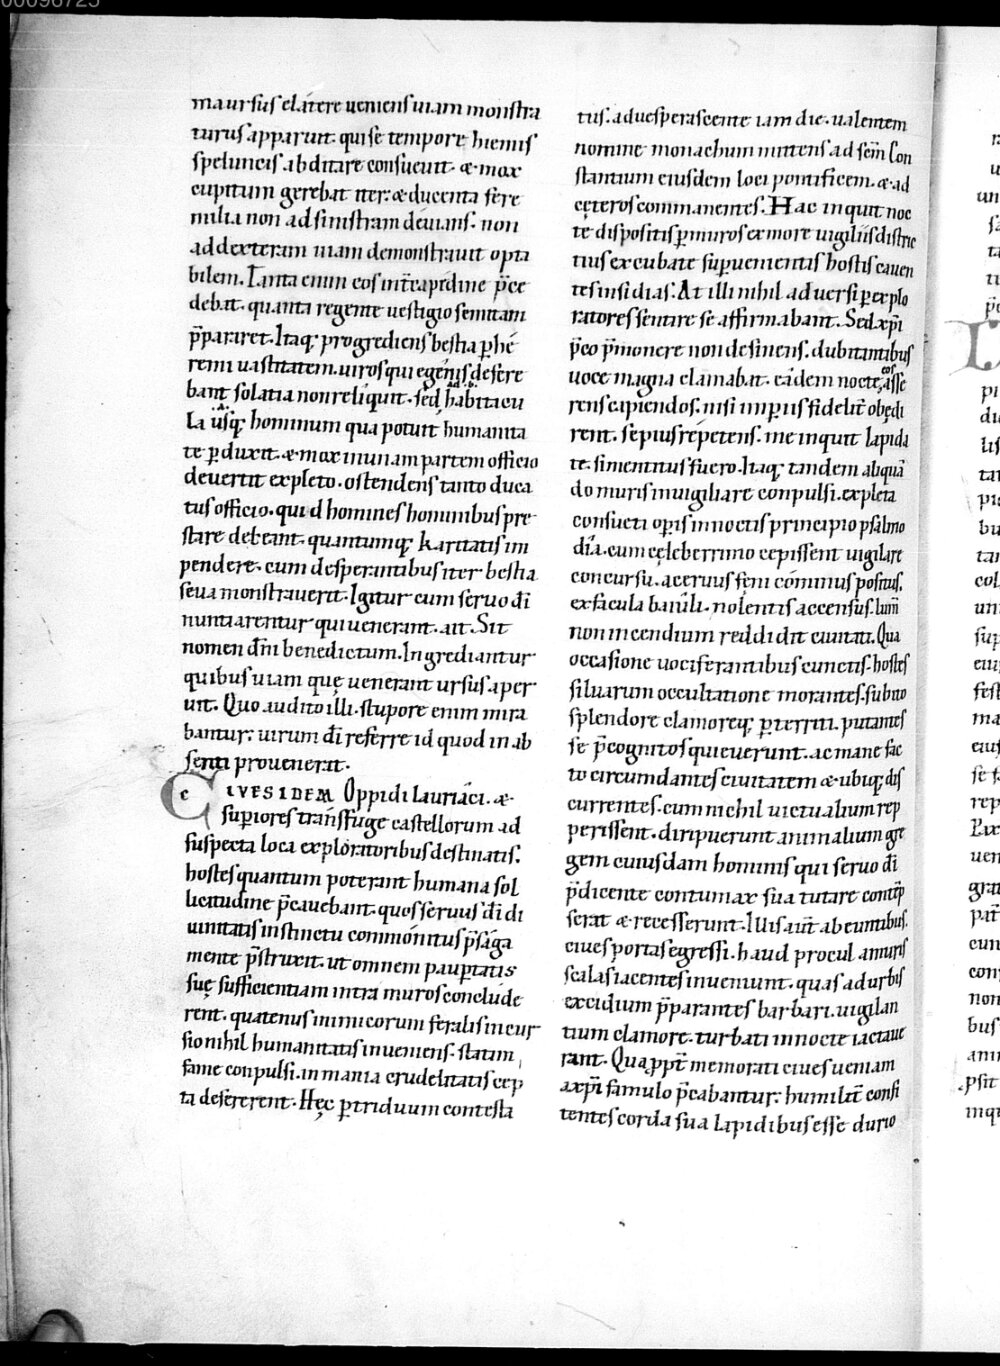 00098725
ma ursus e latere ueniens uiam monstra
turus apparuit. qui se tempore hiemis
speluncis abditare consueuit. & mox
cupitum gerebat iter. & ducenta fere
milia non ad sinistram deuians. non
ad dexteram uiam demonstrauit opta
bilem. Tanta enim eos intrapedine p̄ce
debat. quanta regente uestigio semitam
p̄pararet. Itaq; progrediens bestia p̱ he
remi uastitatem. uiros qui egenis defere
bant solatia non reliquit. sed ad habitacu
la usq; hominum qua potuit humanita
te p̱duxit. & mox in unam partem officio
deuertit expleto. ostendens tanto duca
tus officio. quid homines hominibus pre
stare debeant. quantumq; karitatis im
pendere. cum desperantibus iter bestia
seua monstrauerit. Igitur cum seruo dī
nuntiarentur qui uenerant. ait. Sit
nomen dn̄i benedictum. Ingrediantur
quibus uiam quę uenerant ursus aper
uit. Quo audito illi. stupore enim mira
bantur. uirum dī referre id quod in ab
senti prouenerat.
CIVES IDEM Oppidi Lauriaci. &
superiores transfuge castellorum ad
suspecta loca exploratoribus destinatis.
hostes quantum poterant humana sol
licitudine p̄cauebant. quos seruus dī di
uinitatis instinctu commonitus p̄saga
mente p̄struxit. ut omnem paup̱tatis
suę sufficientiam intra muros conclude
rent. quatenus inimicorum feralis incur
sio nihil humanitatis inueniens. statim
fame conpulsi. inmania crudelitatis cep
ta desererent. Hęc p̱ triduum contesta
tus. aduesperascente iam die. ualentem
nomine monachum mittens ad sc̄m Con
stantium eiusdem loci pontificem. & ad
cęteros commanentes. Hac inquit noc
te dispositis p̱ muros ex more uigiliis distric
tius excubate sup̱uenientis hostis cauen
tes insidias. At illi nihil aduersi p̱ explo
ratores sentire se affirmabant. Sed xp̄i
p̄co p̄monere non desinens. dubitantibus
uoce magna clamabat. eadem nocte eos asse
rens capiendos. nisi imperiis fidelit̄ obędi
rent. sepius repetens. me inquit lapida
te. si mentitus fuero. Itaq; tandem aliquā
do muris inuigilare conpulsi. expleta
consueti opis in noctis principio psalmo
dia. cum cęleberrimo cepissent uigilare
concursu. aceruus feni comminus positus.
ex facula baiuli. nolentis accensus. lum̄
non incendium reddidit ciuitati. Qua
occasione uociferantibus cunctis. hostes
siluarum occultatione morantes. subito
splendore clamoreq; p̱territi. putantes
se p̄cognitos quieuerunt. ac mane fac
to circumdantes ciuitatem & ubiq; dis
currentes. cum nichil uictualium rep
perissent. diripuerunt animalium gre
gem cuiusdam hominis qui seruo dī
p̄dicente contumax sua tutare contēp
serat & recesserunt. Illis aut̄ abeuntibus.
ciues portas egressi. haud procul a muris
scalas iacentes inueniunt. quas ad urbis
excidium p̄parantes barbari. uigilan
tium clamore. turbati in nocte iactaue
rant. Qua ppt̄ memorati ciues ueniam
a xp̄i famulo p̄cabantur. humilit̄ confi
tentes corda sua lapidibus esse durio